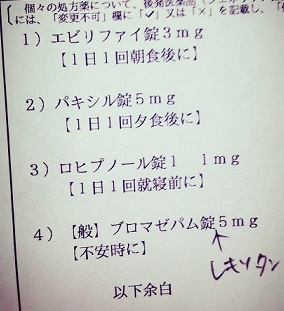 個々の処方薬について、後発医薬品（ジェネリ
には、「変更不可」欄に「✓」又は「×」を記載し、「
1）エビリファイ錠3mg
【1日1回朝食後に】
2）パキシル錠5mg
【1日1回夕食後に】
3）ロヒプノール錠1　1mg
【1日1回就寝前に】
4）【般】ブロマゼパム錠5mg
【不安時に】
レキソタン
以下余白